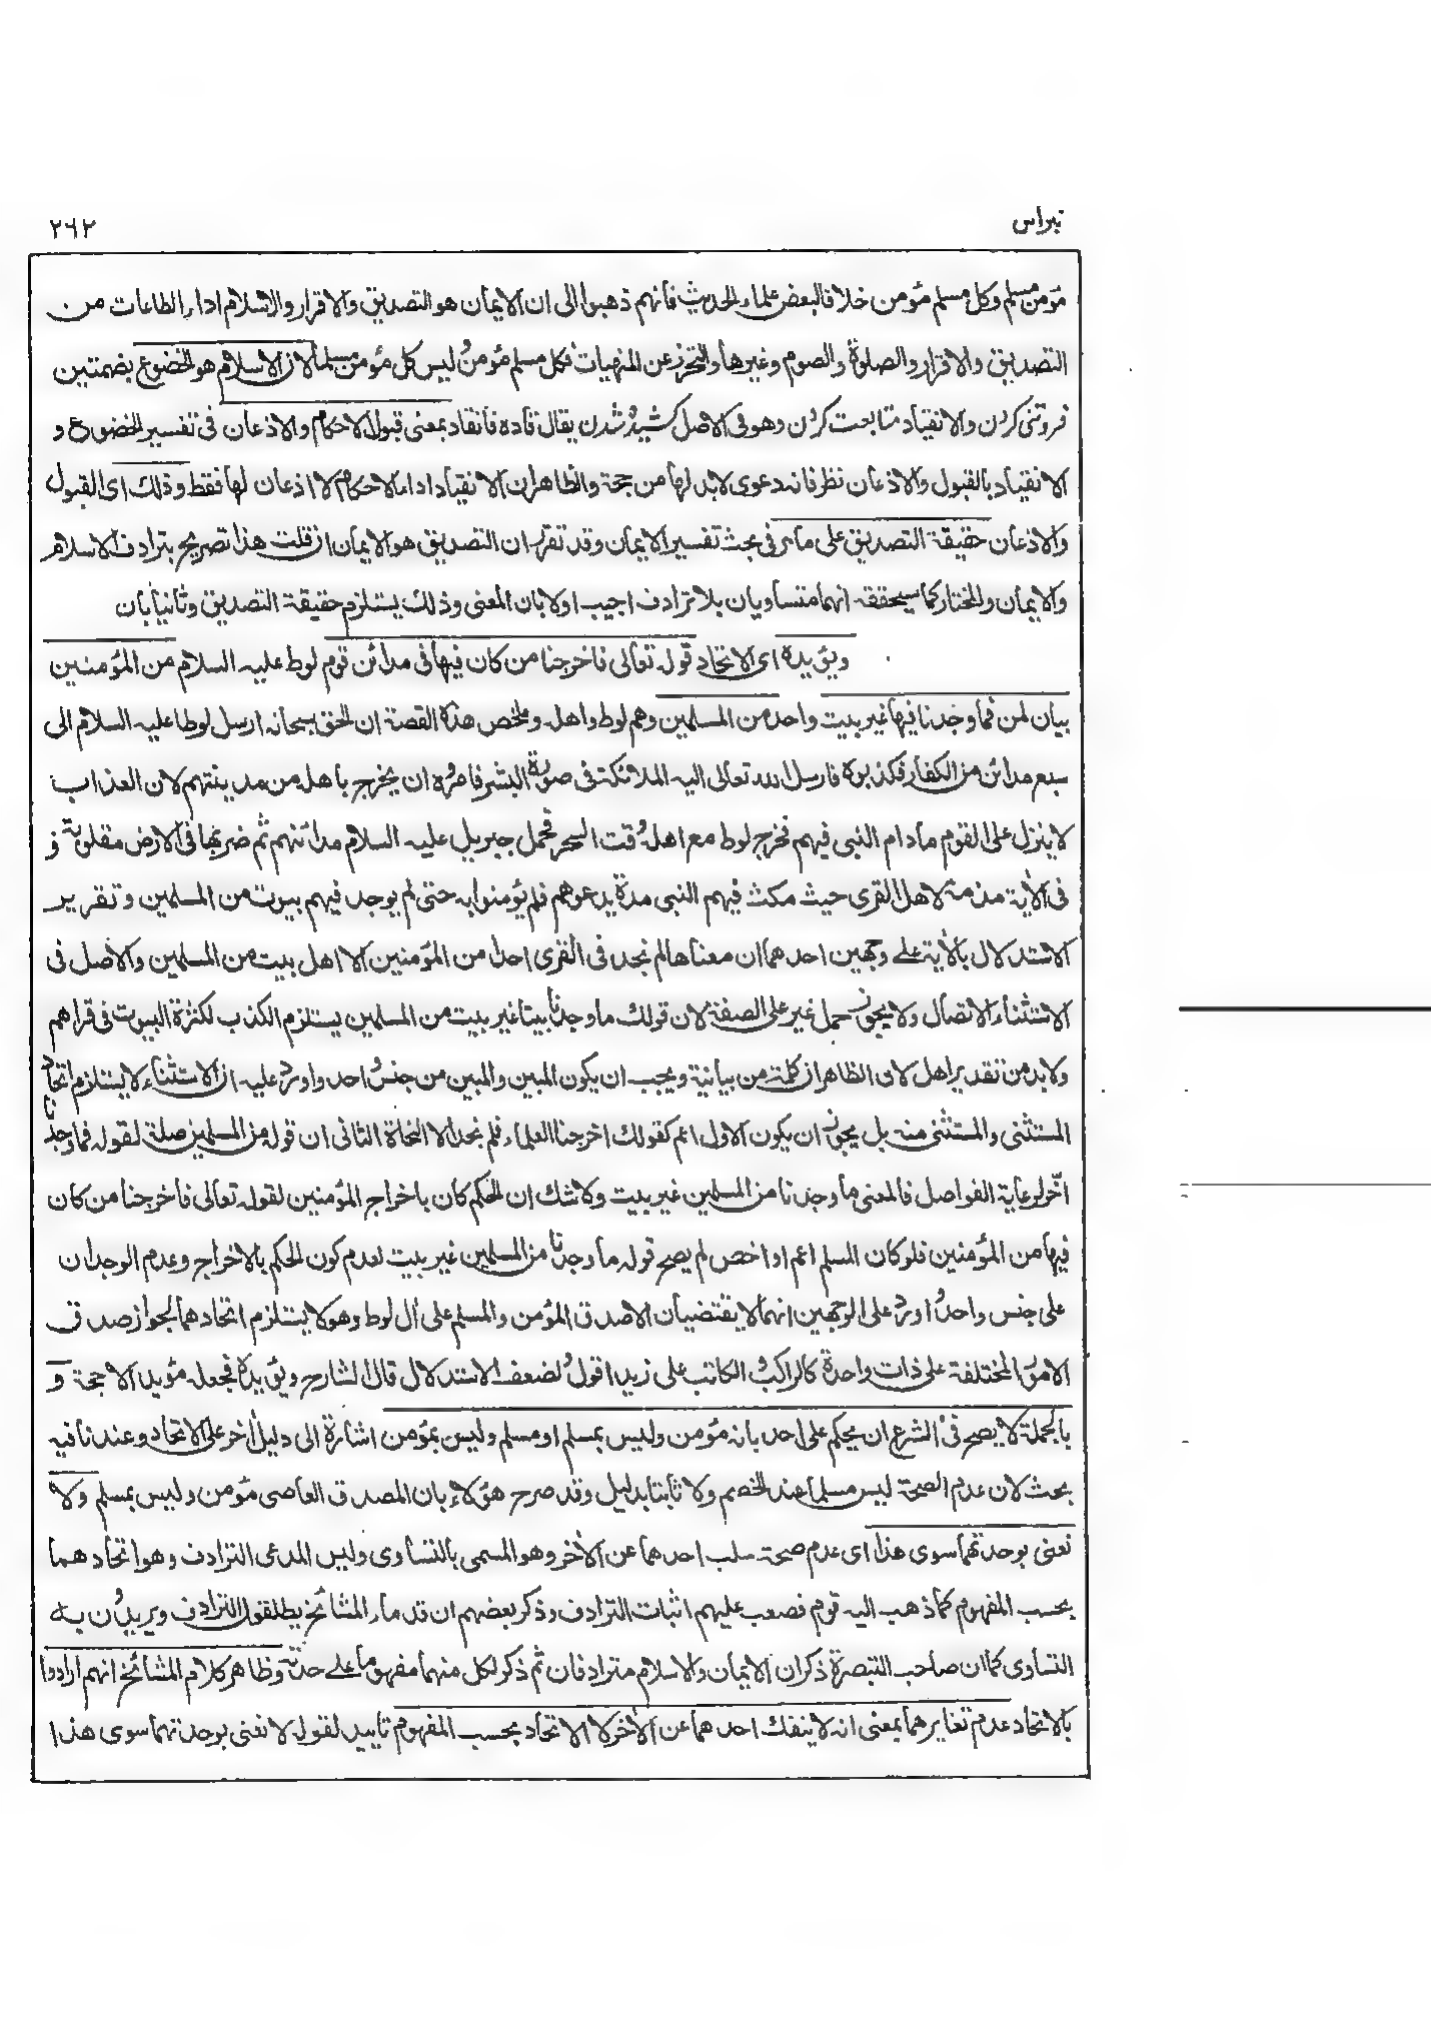 نبراس
٢٦٢
مؤمن مسلم وكل مسلم مؤمن خلافا لبعض علماء الحديث فانهم ذهبوا الى ان الايمان هو التصديق والاقرار والاسلام اداء الطاعات من
التصديق والاقرار والصلوة والصوم وغيرها والتحرز عن المنهيات فكل مسلم مؤمن وليس كل مؤمن مسلما لان الاسلام هو الخضوع بضمتين
فروتنی کردن والانقياد متابعت کردن وهو فى الاصل کشیده شدن يقال قاده فانقاد بمعنى قبول الاحكام والاذعان فى تفسير الخضوع و
الانقياد بالقبول والاذعان نظر فانه دعوى لابد لها من حجة والظاهر ان الانقياد اداء الاحكام لا اذعان لها فقط وذلك اى القبول
والاذعان حقيقة التصديق على ما مر فى بحث تفسير الايمان وقد تقرر ان التصديق هو الايمان ان قلت هذا تصريح بترادف الاسلام
والايمان والمختار كما سيحققه انهما متساويان بلا ترادف اجيب اولا بان المعنى وذلك يستلزم حقيقة التصديق وثانيا بان
ويؤيده اى الاتحاد قوله تعالى فاخرجنا من كان فيها فى مدائن قوم لوط عليه السلام من المؤمنين
بيان لمن فما وجدنا فيها غير بيت واحد من المسلمين وهم لوط واهله وملخص هذه القصة ان الحق سبحانه ارسل لوطا عليه السلام الى
سبع مدائن من الكفار فكذبوه فارسل الله تعالى اليه الملائكة فى صورة البشر فامروه ان يخرج باهله من مدينتهم لان العذاب
لا ينزل على القوم مادام النبى فيهم فخرج لوط مع اهله وقت السحر فحمل جبريل عليه السلام مدائنهم ثم ضربها فى الارض مقلوبة و
فى الاية مذمة لاهل القرى حيث مكث فيهم النبى مدة يدعوهم فلم يؤمنوا به حتى لم يوجد فيهم بيوت من المسلمين وتقرير
الاستدلال بالاية على وجهين احدهما ان معناها لم نجد فى القرى احدا من المؤمنين الا اهل بيت من المسلمين والاصل فى
الاستثناء الاتصال ولا يجوز حمل غير على الصفة لان قولك ما وجدنا بيتا غير بيت من المسلمين يستلزم الكذب لكثرة البيوت فى قراهم
ولابد من تقدير اهل لان الظاهر ان كلمة من بيانية ويجب ان يكون المبين والمبين من جنس احد واورد عليه ان الاستثناء لا يستلزم اتحاد
المستثنى والمستثنى منه بل يجوز ان يكون الاول اعم كقولك اخرجنا العلماء فلم نجد الا النحاة الثانى ان قوله من المسلمين صلة لقوله فما وجدنا
اخر لرعاية الفواصل فالمعنى ما وجدنا من المسلمين غير بيت ولا شك ان الحكم كان باخراج المؤمنين لقوله تعالى فاخرجنا من كان
فيها من المؤمنين فلو كان المسلم اعم او اخص لم يصح قوله ما وجدنا من المسلمين غير بيت لعدم كون الحكم بالاخراج وعدم الوجدان
على جنس واحد واورد على الوجهين انهما لا يقتضيان الا صدق المؤمن والمسلم على ال لوط وهو لا يستلزم اتحادهما لجواز صدق
الامور المختلفة على ذات واحدة كالراكب الكاتب على زيد اقول لضعف الاستدلال قال الشارح ويؤيده فجعله مؤيدا لا حجة و
بالجملة لا يصح فى الشرع ان يحكم على احد بانه مؤمن وليس بمسلم او مسلم وليس بمؤمن اشارة الى دليل اخر على الاتحاد وعندنا فيه
بحث لان عدم الصحة ليس مسلما عند الخصم ولا ثابتا بدليل وقد صرح هؤلاء بان المصدق العاصى مؤمن وليس بمسلم ولا
نعنى بوحدتهما سوى هذا اى عدم صحة سلب احدهما عن الاخر وهو المسمى بالتساوى وليس المدعى الترادف وهو اتحادهما
بحسب المفهوم كما ذهب اليه قوم فصعب عليهم اثبات الترادف وذكر بعضهم ان قدماء المشائخ يطلقون الترادف ويريدون به
التساوى كما ان صاحب التبصرة ذكر ان الايمان والاسلام مترادفان ثم ذكر لكل منهما مفهوما على حدة وظاهر كلام المشائخ انهم ارادوا
بالاتحاد عدم تغايرهما بمعنى انه لا ينفك احدهما عن الاخر لا الاتحاد بحسب المفهوم تاييد لقوله لا نعنى بوحدتهما سوى هذا